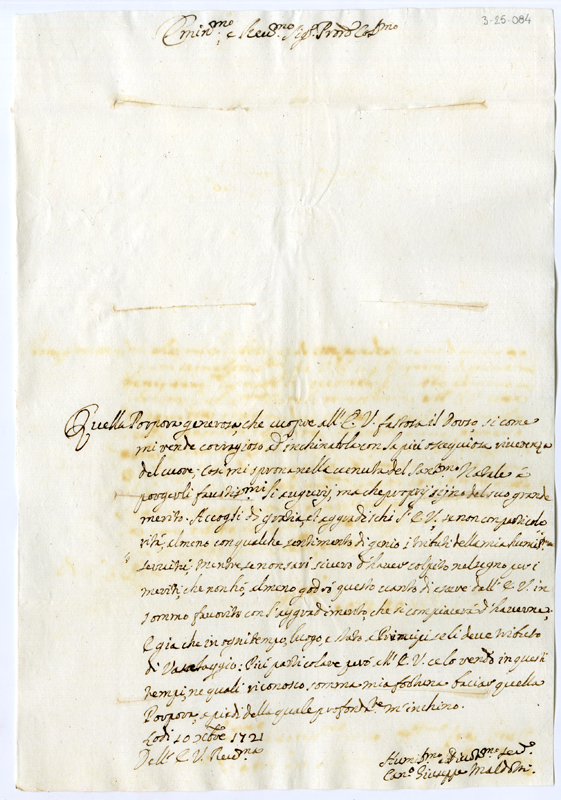 3-25-084
Emin.mo e Rev.mo Sig.r Pron Col.mo
Quella Porpora generosa che cuopre all'E.V. fastosa il Dorso, si come
mi rende coraggioso ad inchinarla con la più ossequiosa riverenza
del cuore; così mi sprona nella venuta del Sant.mo Natale à
porgerli faustissimi li augurij, ma che proprij sijno del suo grande
merito. Accogli di grazia, et aggradischi l'E.V. se non con particolo
rità, almeno con qualche sentimento di genio i tributi della mia humil.ma
servitù mentre se non sarò sicuro d'haver colpito nel segno per i
meriti che non hò, almeno godrò questo vanto di essere dall'E.V. in
sommo favorito con l'aggradimento che si compiacerà d'haverne,
E gia che in ogni tempo, luogo, e stato a Prencipi se li deve tributo
di Vasalaggio; Più particolare però all'E.V. ce lo rendo in questi
tempi ne quali riconosco somma mia fortuna baciar quella
Porpora, a piedi della quale profondam.te m'inchino.
Lodi 10 Xbre 1721
Dell'E.V. Rev.ma
Humil.mo e Devot.mo Ser.e
Can.o Giuseppe Maldotti